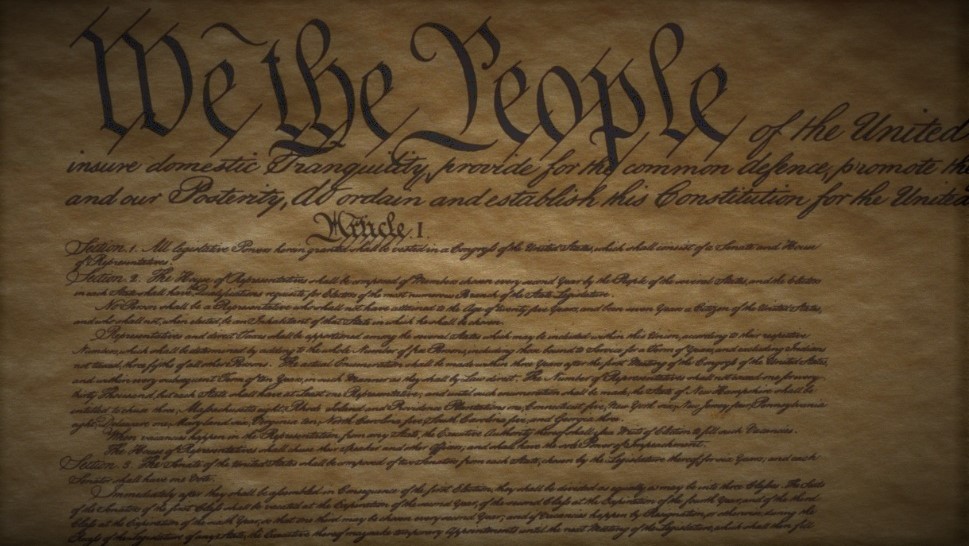 We the People of the United
insure domestic Tranquility, provide for the common defence, promote the
and our Posterity, do ordain and establish this Constitution for the United
Article. I.
Section. 1. All legislative Powers herein granted shall be vested in a Congress of the United States, which shall consist of a Senate and House
of Representatives.
Section. 2. The House of Representatives shall be composed of Members chosen every second Year by the People of the several States, and the Electors
in each State shall have Qualifications requisite for Electors of the most numerous Branch of the State Legislature.
No Person shall be a Representative who shall not have attained to the Age of twenty five Years, and been seven Years a Citizen of the United States,
and who shall not, when elected, be an Inhabitant of that State in which he shall be chosen.
Representatives and direct Taxes shall be apportioned among the several States which may be included within this Union, according to their respective
Numbers, which shall be determined by adding to the whole Number of free Persons, including those bound to Service for a Term of Years, and excluding Indians
not taxed, three fifths of all other Persons. The actual Enumeration shall be made within three Years after the first Meeting of the Congress of the United States,
and within every subsequent Term of ten Years, in such Manner as they shall by Law direct. The Number of Representatives shall not exceed one for every
thirty Thousand, but each State shall have at Least one Representative; and until such enumeration shall be made, the State of New Hampshire shall be
entitled to chuse three, Massachusetts eight, Rhode Island and Providence Plantations one, Connecticut five, New York six, New Jersey four, Pennsylvania
eight, Delaware one, Maryland six, Virginia ten, North Carolina five, South Carolina five, and Georgia three.
When vacancies happen in the Representation from any State, the Executive Authority thereof shall issue Writs of Election to fill such Vacancies.
The House of Representatives shall chuse their Speaker and other Officers; and shall have the sole Power of Impeachment.
Section. 3. The Senate of the United States shall be composed of two Senators from each State, chosen by the Legislature thereof for six Years; and each
Senator shall have one Vote.
Immediately after they shall be assembled in Consequence of the first Election, they shall be divided as equally as may be into three Classes. The Seats
of the Senators of the first Class shall be vacated at the Expiration of the second Year, of the second Class at the Expiration of the fourth Year, and of the third
Class at the Expiration of the sixth Year, so that one third may be chosen every second Year; and if Vacancies happen by Resignation, or otherwise, during the
Recess of the Legislature of any State, the Executive thereof may make temporary Appointments until the next Meeting of the Legislature, which shall then fill